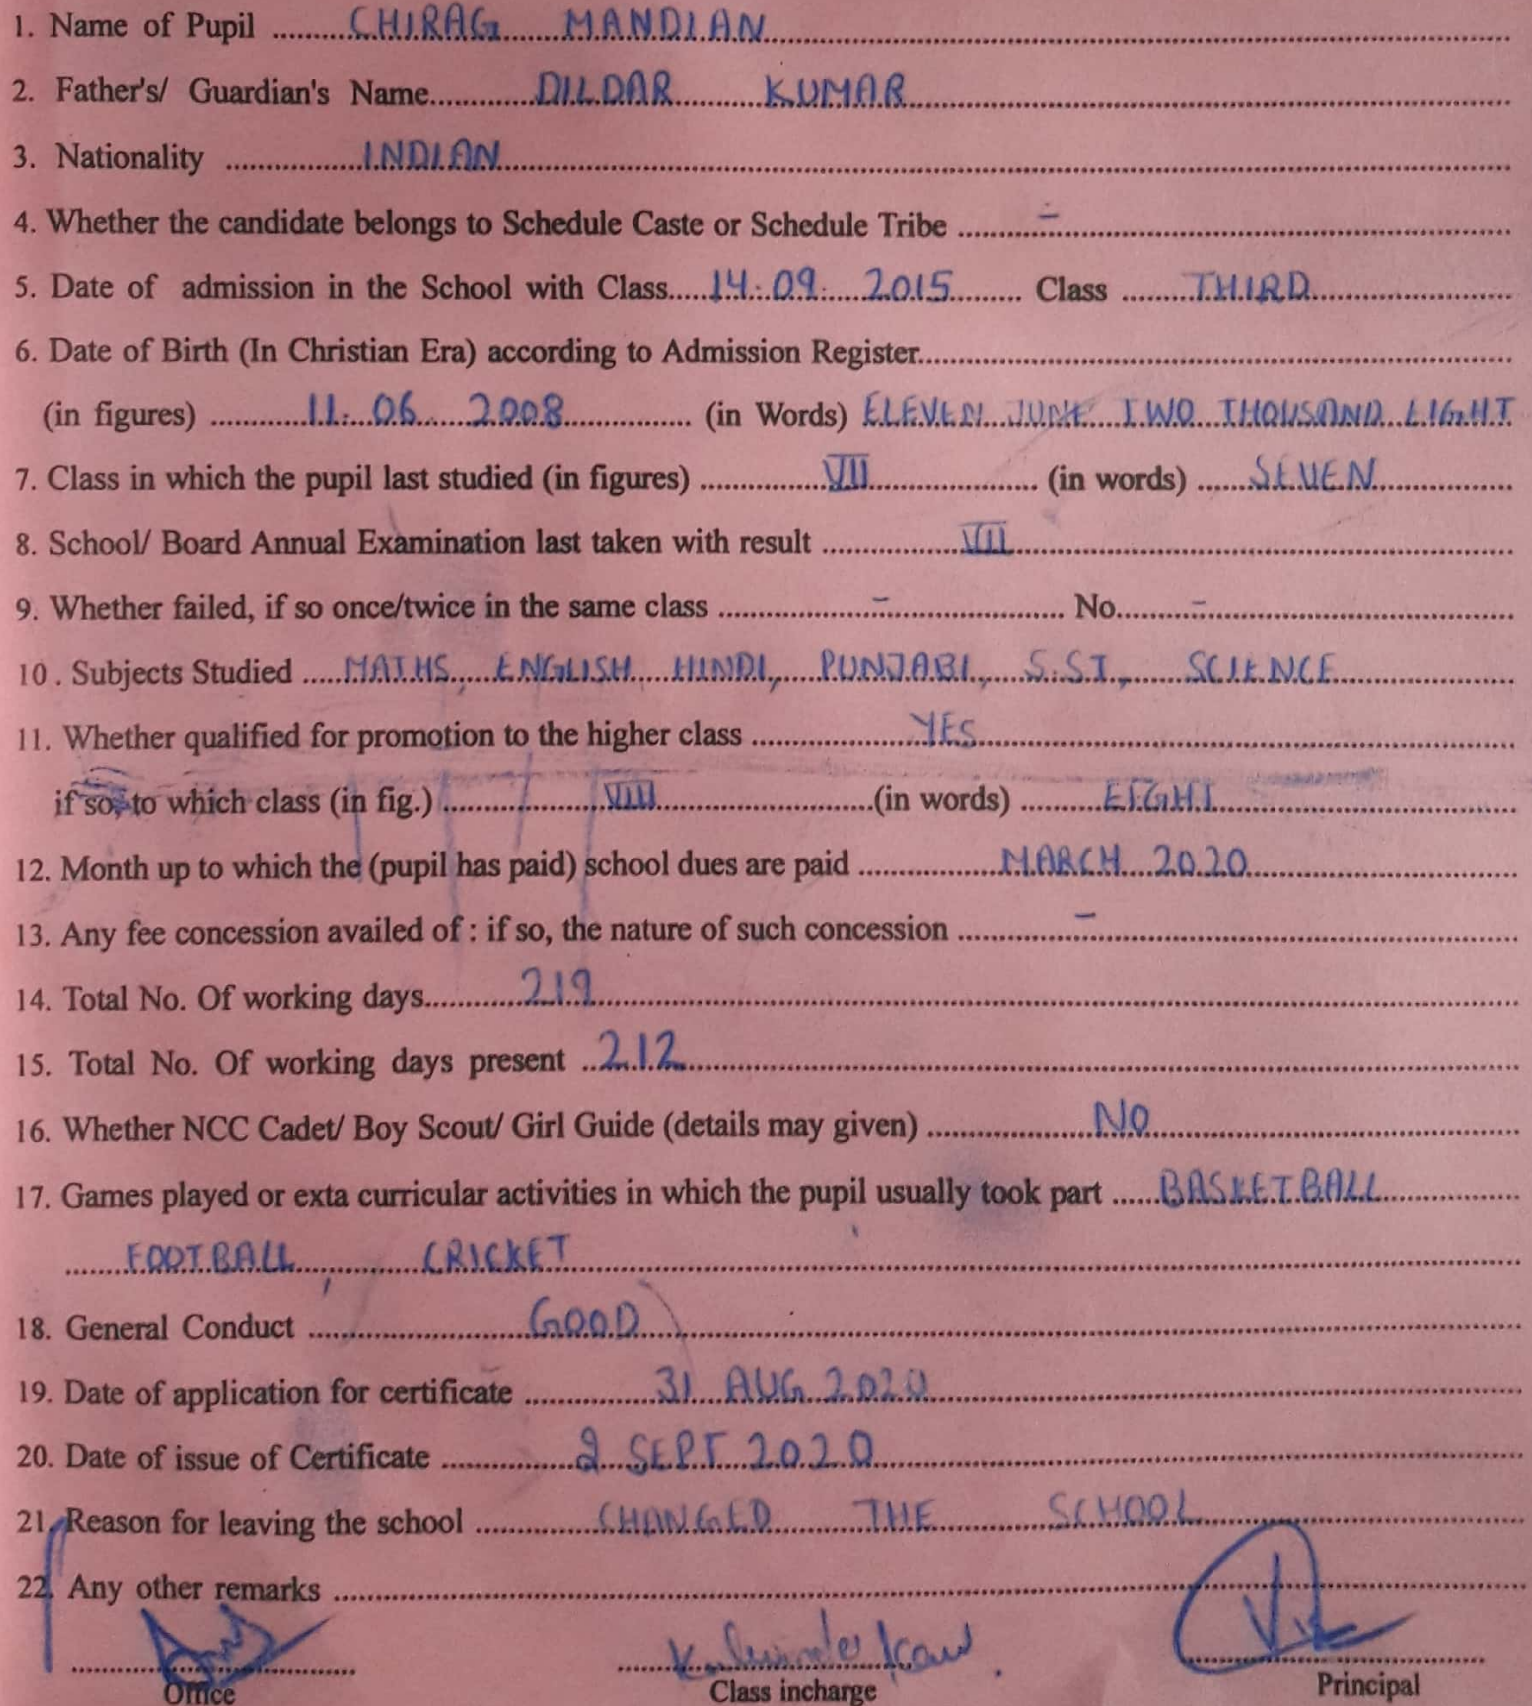 1. Name of Pupil .........CHIRAG MANDIAN.........
2. Father's/ Guardian's Name............DILDAR KUMAR.........
3. Nationality ...............INDIAN.........
4. Whether the candidate belongs to Schedule Caste or Schedule Tribe .........-.........
5. Date of admission in the School with Class.....14.09.2015......... Class .........THIRD.........
6. Date of Birth (In Christian Era) according to Admission Register.........
(in figures) ............11.06.2008............ (in Words) ELEVEN JUNE TWO THOUSAND EIGHT
7. Class in which the pupil last studied (in figures) ............VII............ (in words) ......SEVEN.........
8. School/ Board Annual Examination last taken with result ...............VII.........
9. Whether failed, if so once/twice in the same class ...............-............... No.........-.........
10. Subjects Studied .....MATHS, ENGLISH HINDI, PUNJABI, S.ST, SCIENCE.........
11. Whether qualified for promotion to the higher class ...............YES.........
if so, to which class (in fig.) ...............VIII...............(in words) .........EIGHT.........
12. Month up to which the (pupil has paid) school dues are paid ...............MARCH 2020.........
13. Any fee concession availed of : if so, the nature of such concession ............-.........
14. Total No. Of working days............219.........
15. Total No. Of working days present ..212.........
16. Whether NCC Cadet/ Boy Scout/ Girl Guide (details may given) ...............NO.........
17. Games played or exta curricular activities in which the pupil usually took part ......BASKETBALL.........
.......FOOTBALL, CRICKET.........
18. General Conduct ...............GOOD.........
19. Date of application for certificate ...............31 AUG 2020.........
20. Date of issue of Certificate ...............2 SEPT 2020.........
21. Reason for leaving the school ............CHANGED THE SCHOOL.........
22. Any other remarks .........
Kulwinder Kaur
Office Class incharge Principal